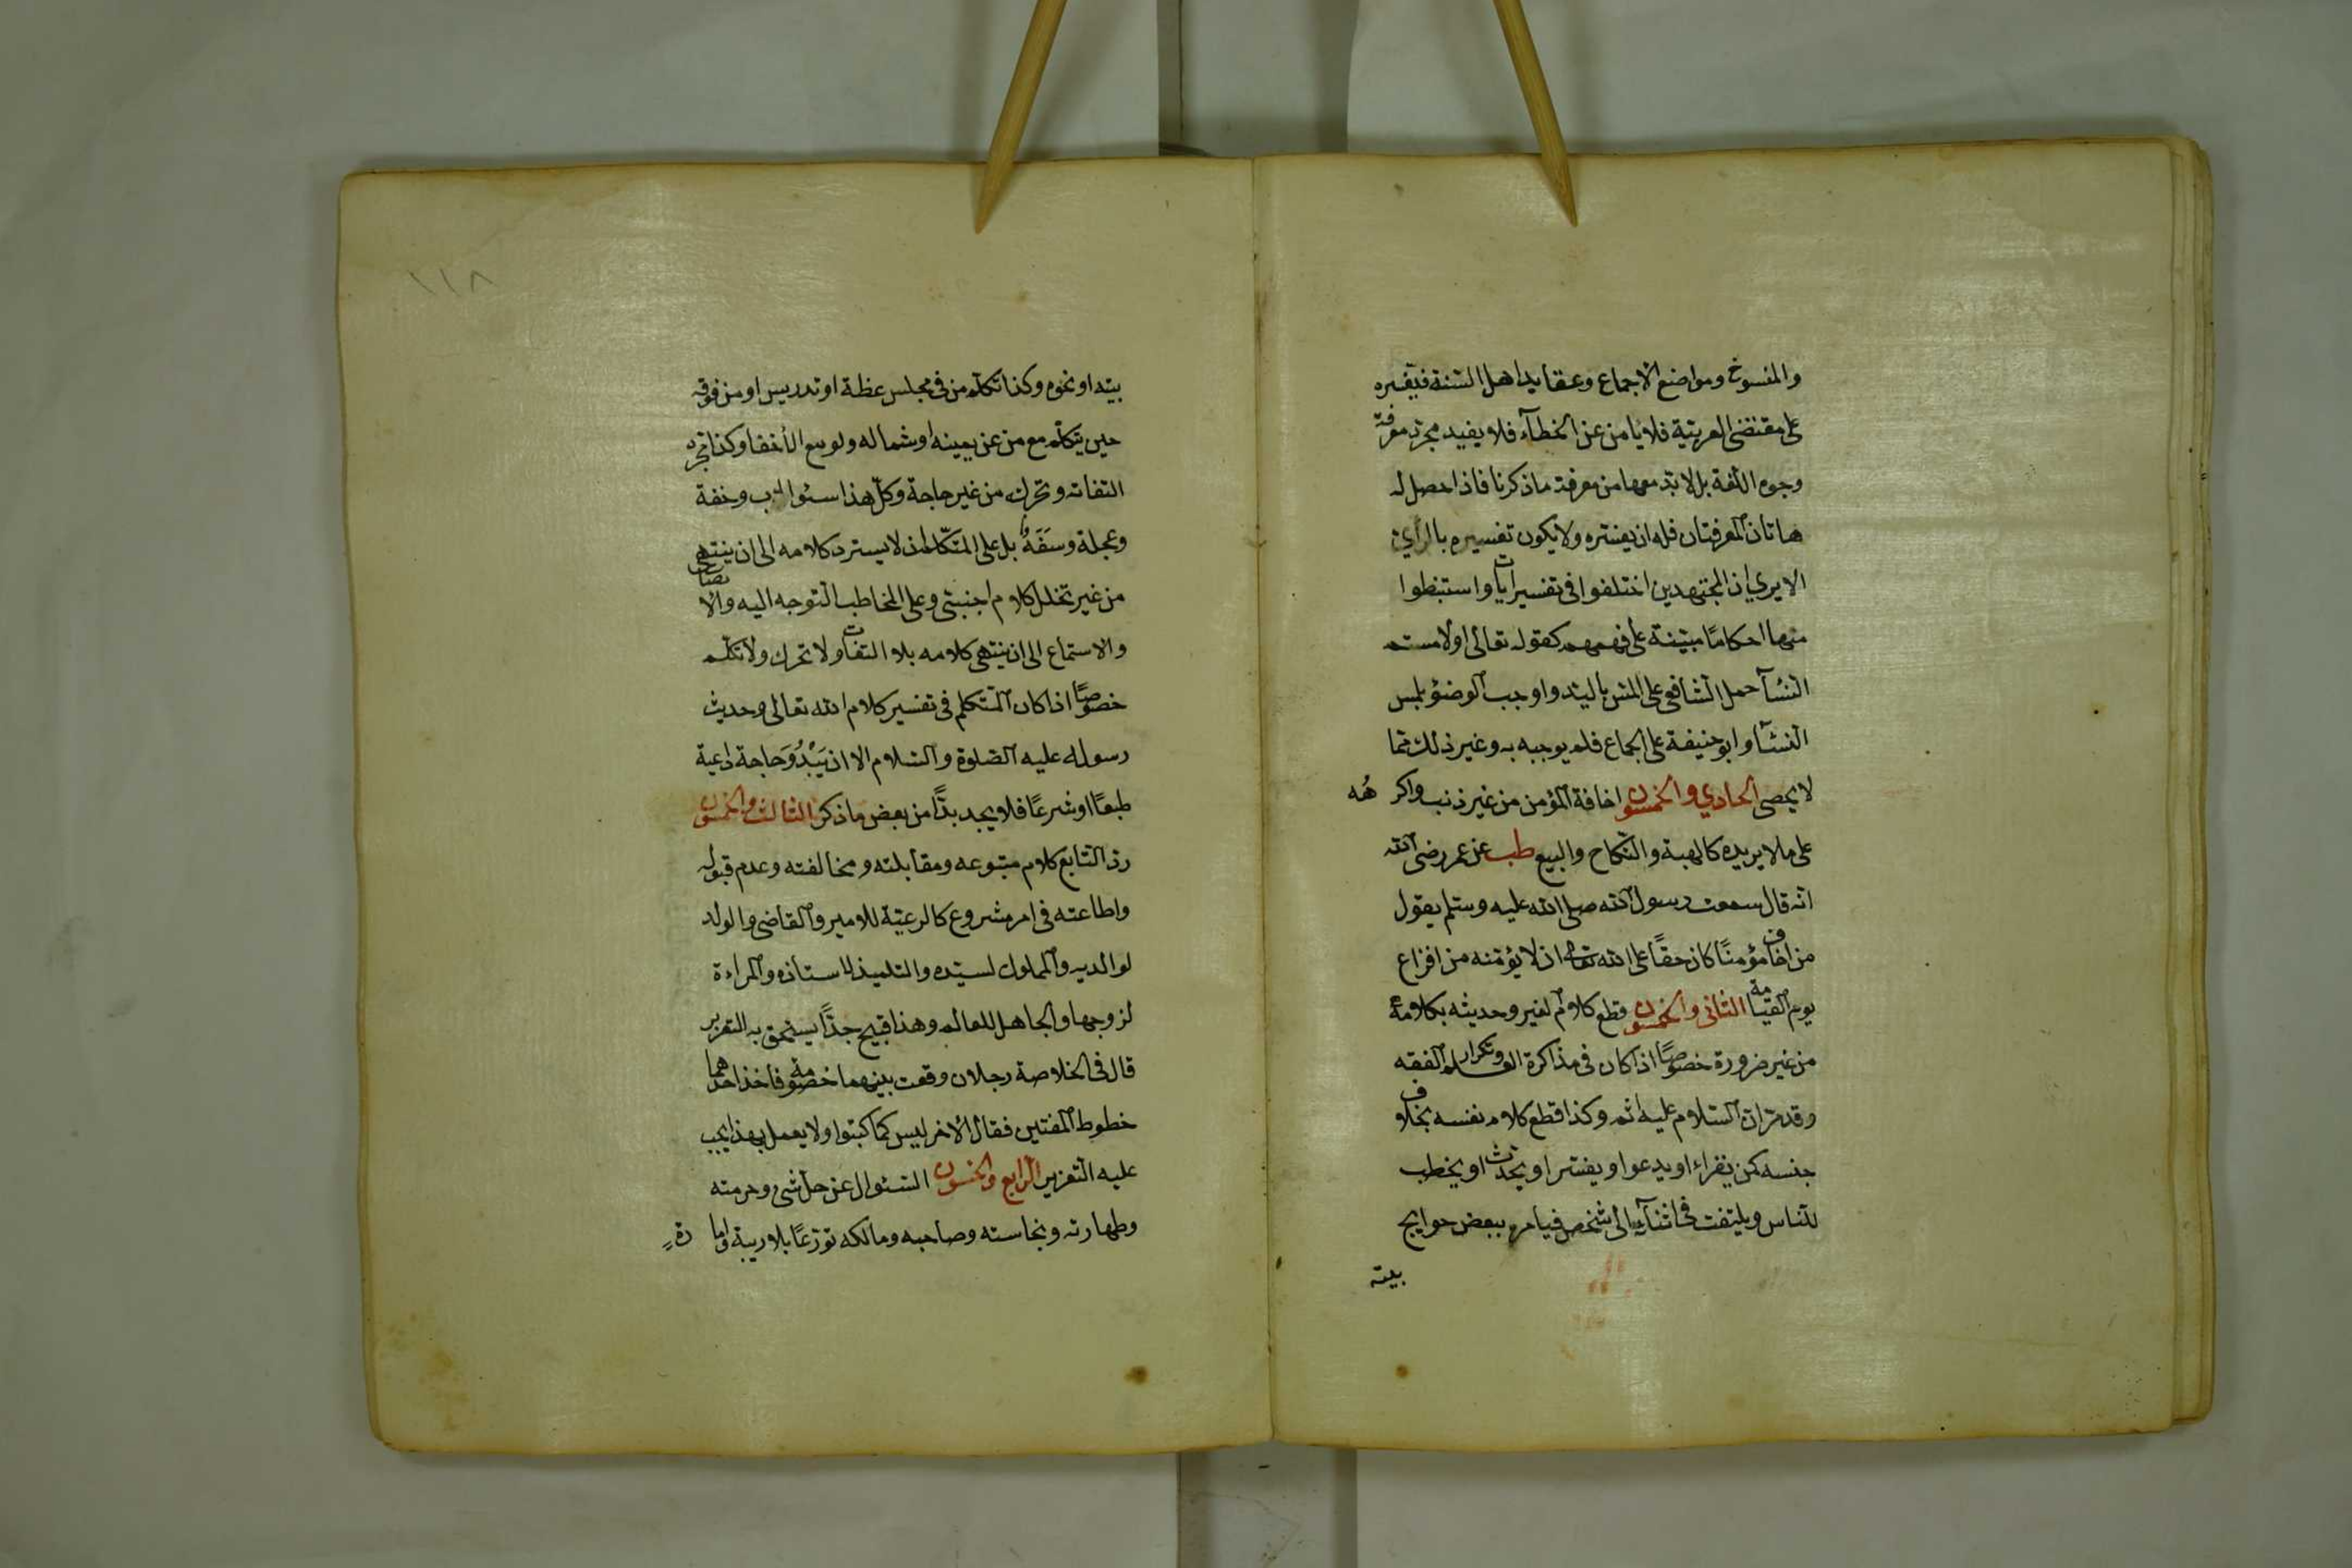 والمنسوخ ومواضع الاجماع وعقايد اهل السّنة فيفسره
على مقتضى العربيّة فلا يأمن عن الخطآء فلا يفيد مجرّد معرفة
وجوه اللّغة بل لا بدّ معها من معرفة ما ذكرنا فاذا حصل له
هاتان المعرفتان فله ان يفسّره ولا يكون تفسيره بالرّأي
الا يرى ان المجتهدين اختلفوا فى تفسير ايات واستنبطوا
منها احكامًا مبتنية على فهمهم كقوله تعالى اولامستم
النّسآ حمل الشّافعى على المسّ باليد واوجب الوضوٴ بلمس
النّسآ وابو حنيفة على الجماع فلم يوجبه به وغير ذلك ممّا
لا يحصى الحادي والخمسون اخافة المؤمن من غير ذنب واكراهُه
على ما لا يريده كالهبة والنّكاح والبيع طب عن عمر رضى الله
انّه قال سمعت رسول الله صلى الله عليه وسلّم يقول
من اخاف مؤمنًا كان حقًّا على الله تعالى ان لا يؤمّنه من افزاع
يوم القيامة الثّانى والخمسون قطع كلام الغير وحديثه بكلامه
من غير ضرورة خصوصًا اذا كان فى مذاكرة العلم وتكرار الفقه
وقد مرّ انّ السّلام عليه اثم وكذا قطع كلام نفسه بخلاف
جنسه كمن يقراء او يدعوا او يفسّر او يحدّث او يخطب
للنّاس ويلتفت فى اثنآئه الى شخص فيامره ببعض حوايج
بيته
١١٨
بيته او نحوه وكذا تكلّم من فى مجلس عظة او تدريس او من فوقه
حين يتكلّم مع من عن يمينه او شماله ولو مع الأخفا وكذا مجرّد
التفاته وتحرّك من غير حاجة وكلّ هذا سوٴ ادب وخفة
وعجلة وسَفَهٌ بل على المتكلّم ان لا يسترد كلامه الى ان ينتهى
من غير تخلل كلام اجنبىّ وعلى المخاطب التوجه اليه والانصات
والاستماع الى ان ينتهى كلامه بلا التفات ولا تحرك ولا تكلّم
خصوصًا اذا كان المتكلم فى تفسير كلام الله تعالى وحديث
رسوله عليه الصّلوة والسّلام الا ان يَبْدُوَ حَاجة داعية
طبعًا او شرعًا فلا يجد بدًّا من بعض ما ذكر الثالث والخمسون
ردّ التّابع كلام متبوعه ومقابلته ومخالفته وعدم قبوله
واطاعته فى امر مشروع كالرعيّة للامير والقاضى والولد
لوالديه والمملوك لسيّده والتلميذ لاستاذه والمراءة
لزوجها والجاهل للعالم وهذا قبيح جدًّا يستحق به التعزير
قال فى الخلاصة رجلان وقعت بينهما خصومة فاخذ احدهما
خطوط المفتين فقال الاخر ليس كما كتبوا ولا يعمل بهذا يجب
عليه التّعزير الرّابع والخمسون السّئوال عن حلّ شئ وحرمته
وطهارته ونجاسته وصاحبه ومالكه تورّعًا بلا ريبة وامارة